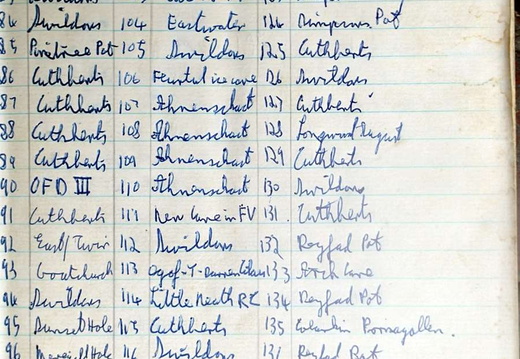 84 Swildons 104 Eastwater 124 Simpsons Pot
85 Pinetree Pot 105 Swildons 125 Cuthberts
86 Cuthberts 106 ice cave 126 Swildons
87 Cuthberts 107 Ahnenschact 127 Cuthberts
88 Cuthberts 108 Ahnenschact 128 Longwood August
89 Cuthberts 109 Ahnenschact 129 Cuthberts
90 OFD III 110 Ahnenschact 130 Swildons
91 Cuthberts 111 New Cave in FV 131. Cuthberts
92 East/Twin 112 Swildons 132 Reyfad Pot
93 Goatchurch 113 Ogof-Y- 133 Arch Cave
94 Swildons 114 Little Neath R 134 Reyfad Pot
95 Sunset Hole 115 Cuthberts 135
96 Hole 116 Swildons 136 Reyfad Pot